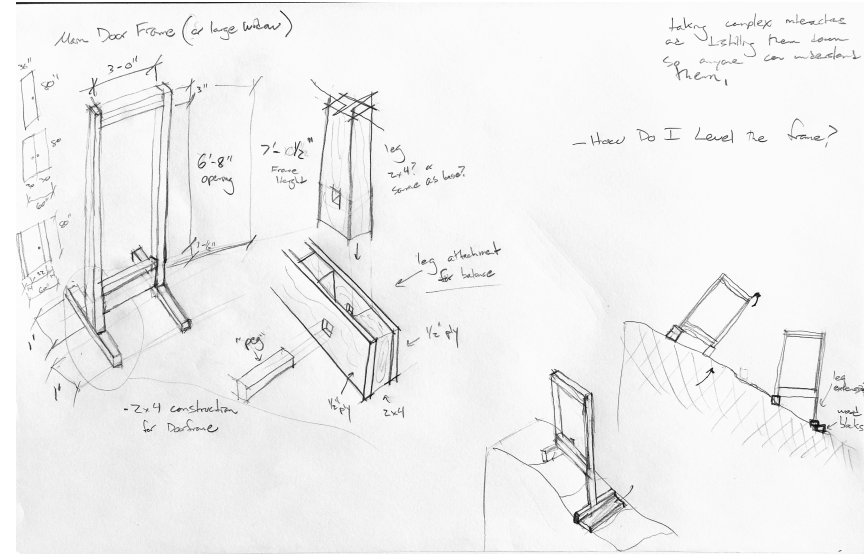 Main Door Frame (or large Window)
taking complex
them down
so anyone can understand
them,
- How Do I Level the frame?
36"
80"
3'-0"
3"
80
6'-8"
opening
7'-
Frame
Height
leg
2x4? or
same as base?
80"
leg attachment
for balance
1/2" ply
"peg"
1/2" ply
2x4
1'
1'
- 2x4 construction
for Doorframe
leg
wood
blocks